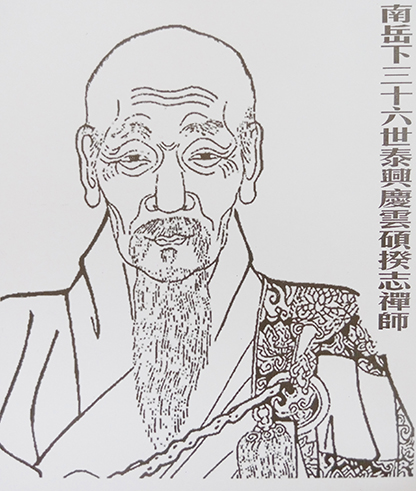 南岳下三十六世泰興慶雲碩揆志禪師